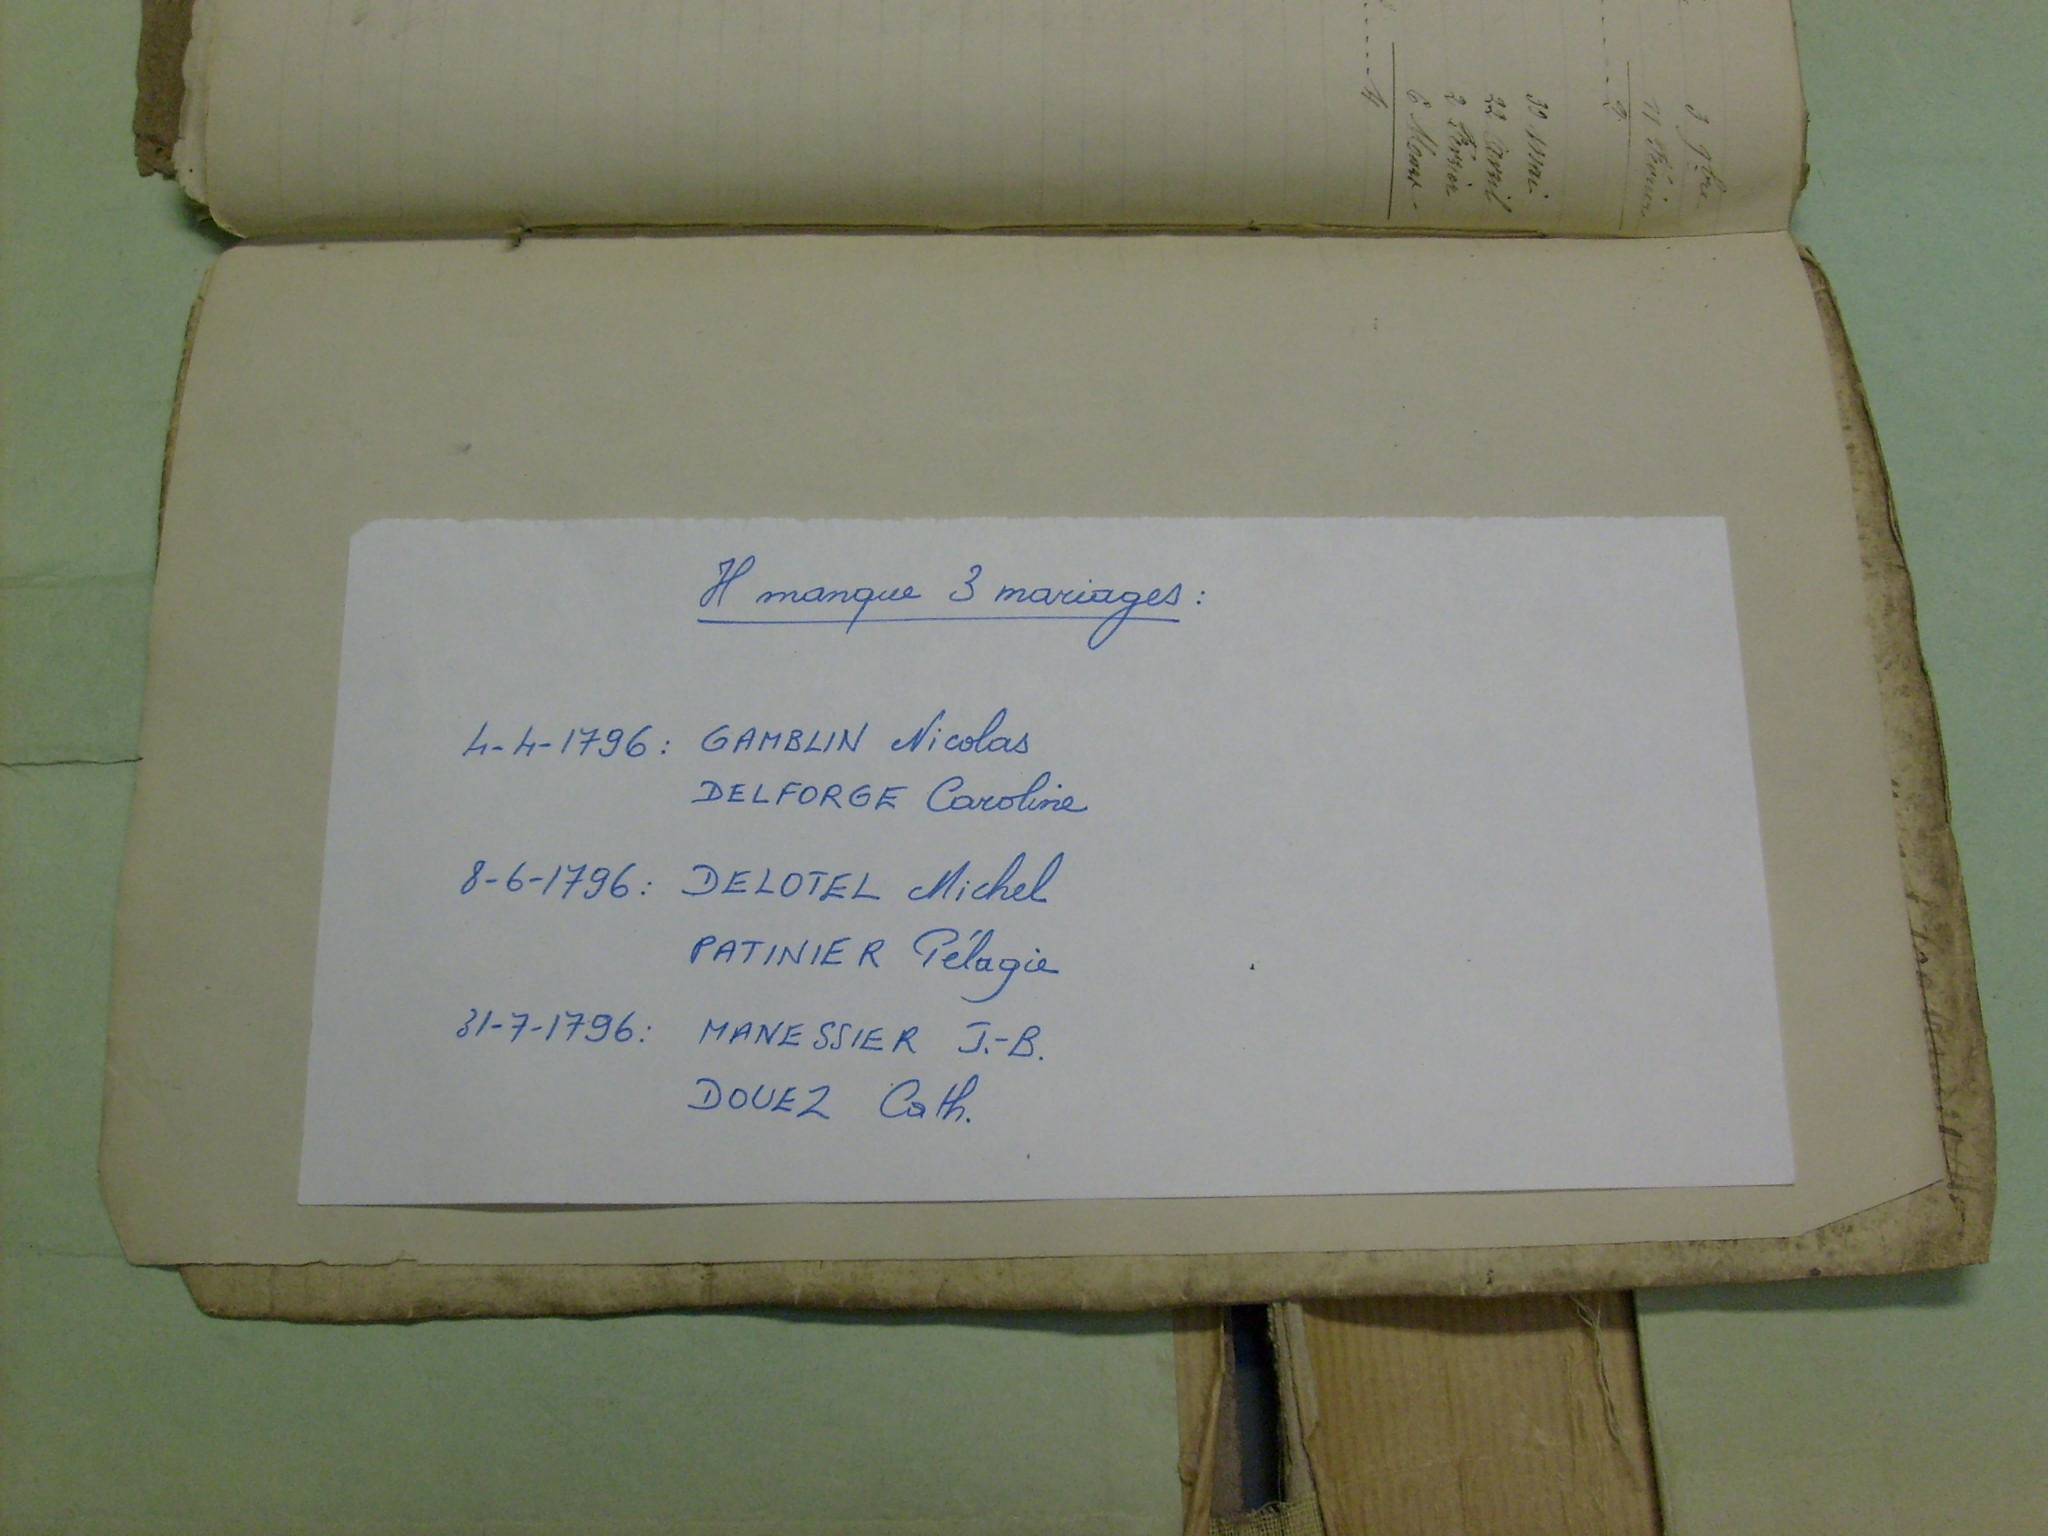 3 9bre
11 Février
2
30 Mai
22 Avril
2 Février
6
4
Il manque 3 mariages :
4-4-1796 : GAMBLIN Nicolas
DELFORGE Caroline
8-6-1796 : DELOTEL Michel
PATINIER Pélagie
31-7-1796 : MANESSIER J.-B.
DOUEZ Cath.